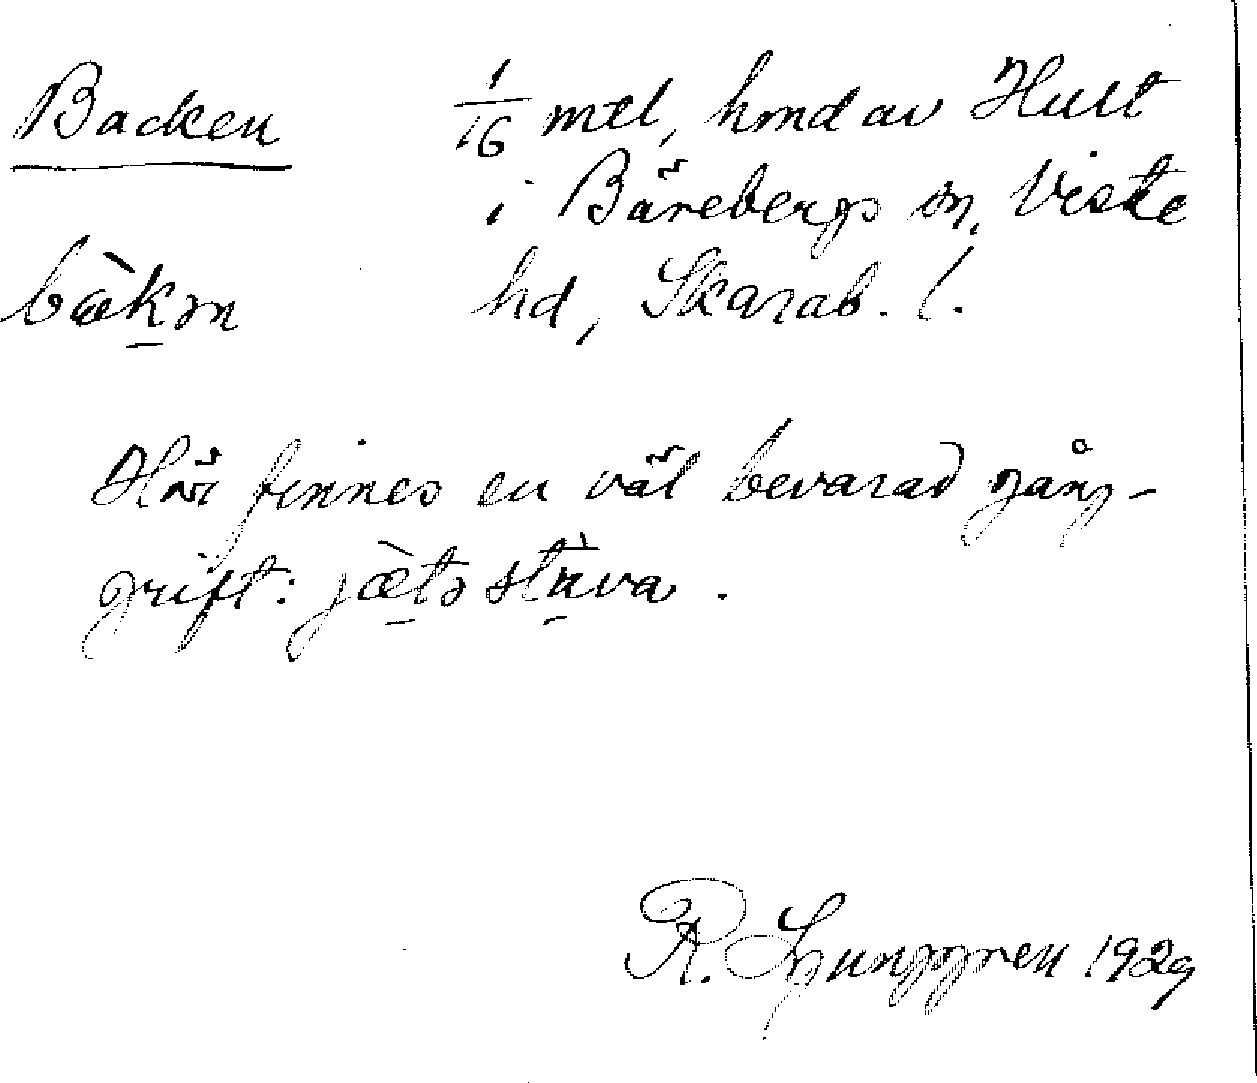 Backen 1/16 mtl, hmd av Hult
i Bärebergs sn, Viste
bàkən hd, Skarab. l.
Här finnes en väl bevarad gång-
grift: jæ̀tə stùva.
R. Ljunggren 1929